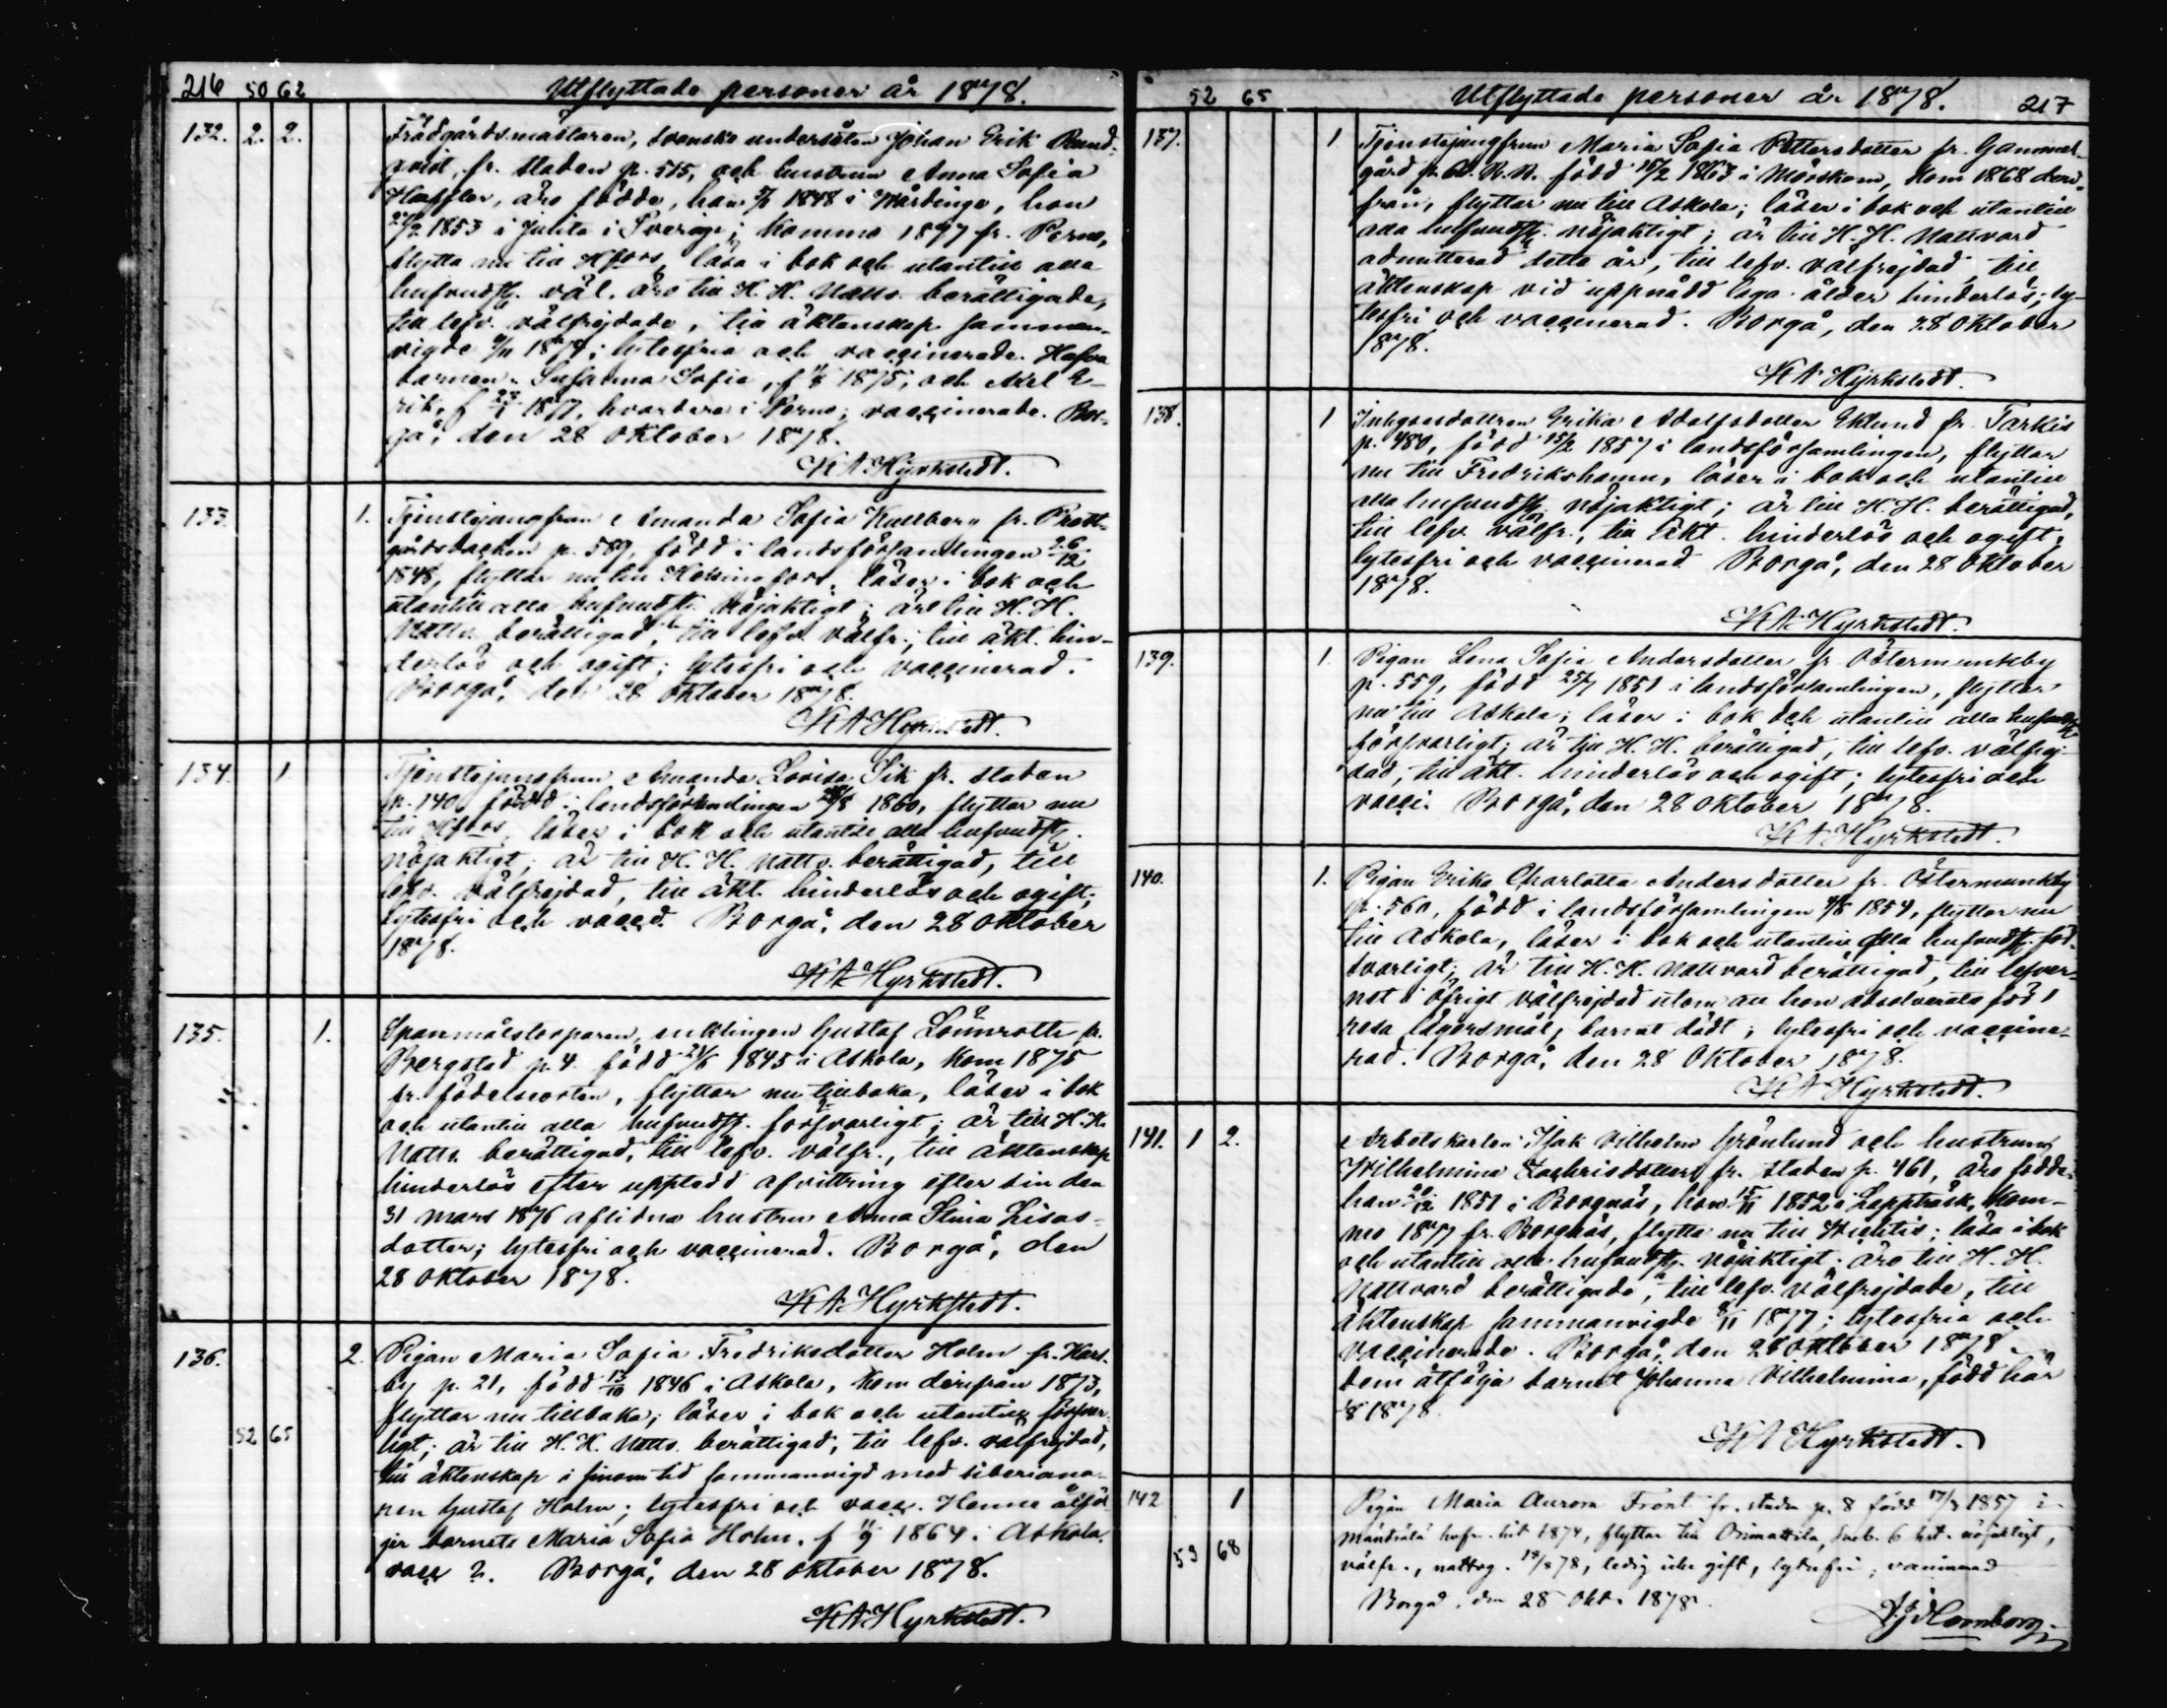 216 50 62 Utflyttade personer år 1878.
132. 2. 2. Trädgårdsmästaren, svenske undersåten Johan Erik Rund-
qvist, fr. staden p. 515, och hustrun Anna Sofia
äro födde, han 1848 i Mårdinge, hon
1853 i Julita i Sverige; kommo 1877 fr. Perno,
flytta nu till Hfors, läsa i bok och utantill alla
hufvudst. väl, äro till H. H. Nattv. berättigade,
till lefv. välfrejdade, till äktenskap samman-
vigde 1874; lytesfria och vaccinerade. Hafva
barnen: Susanna Sofia, f 1875, och Axel E-
rik, f 1877, hvardera i Perno; vaccinerade. Bor-
gå, den 28 Oktober 1878.
K A Hyrkstedt.
133. 1. Tjenstejungfrun Amanda Sofia Kullberg fr. Prest-
gårdsbacken p. 589, född i landsförsamlingen 26/12
1848, flyttar nu till Helsingfors, läser i bok och
utantill alla hufvudst. nöjaktigt; är till H. H.
Nattv. berättigad, till lefv. välfr.; till äkt. hin-
derlös och ogift; lytesfri och vaccinerad.
Borgå, den 28 Oktober 1878.
K A Hyrkstedt.
134. 1 Tjenstejungfrun Amanda Lovisa Sik fr. staden
p. 140, född i landsförsamlingen 1860, flyttar nu
till Hfors, läser i bok och utantill alla hufvudst.
nöjaktigt; är till H. H. Nattv. berättigad, till
lefv. välfrejdad, till äkt. hinderlös och ogift;
lytesfri och vaccd. Borgå, den 28 Oktober
1878.
K A Hyrkstedt.
135. 1. enklingen Gustaf Lönnroth fr.
Bergstad p. 4. född 1845 i Askola, kom 1875
fr. födelseorten, flyttar nu tillbaka, läser i bok
och utantill alla hufvudst. försvarligt; är till H. H.
Nattv. berättigad, till lefv. välfr., till äktenskap
hinderlös efter upptedd afvittring efter sin den
31 mars 1876 aflidna hustru Anna Stina Lisas-
dotter; lytesfri och vaccinerad. Borgå, den
28 Oktober 1878.
K A Hyrkstedt.
136. 2. Pigan Maria Sofia Fredriksdotter Holm fr. Karl-
by p. 21, född 13/10 1846 i Askola, kom derifrån 1873,
flyttar nu tillbaka; läser i bok och utantill försvar-
52 65 ligt; är till H. H. Nattv. berättigad, till lefv. välfrejdad,
till äktenskap i sinom tid sammanvigd med siberiana-
ren Gustaf Holm; lytesfri och vacc. Henne åtföl-
jer barnet Maria Sofia Holm, f 11/9 1864 i Askola.
vacc ?. Borgå, den 28 Oktober 1878.
K A Hyrkstedt.
52 65 Utflyttade personer år 1878. 217
137. 1 Tjenstejungfrun Maria Sofia Pettersdotter fr. Gammel-
gård född 15/2 1863 i Mörskom, kom 1868 der-
från, flyttar nu till Askola; läser i bok och utantill
alla hufvudst. nöjaktigt; är till H. H. Nattvard
admitterad detta år, till lefv. välfrejdad, till
äktenskap vid uppnådd laga ålder hinderlös; ly-
tesfri och vaccinerad. Borgå, den 28 Oktober
1878.
K A Hyrkstedt.
138. 1 Inhysesdottren Erika Adolfsdotter Eklund fr. Tarkis
p. 480, född 15/2 1857 i landsförsamlingen, flyttar
nu till Fredrikshamn, läser i bok och utantill
alla hufvudst. nöjaktigt; är till H. H. berättigad,
till lefv. välfr., till äkt. hinderlös och ogift;
lytesfri och vaccinerad Borgå, den 28 Oktober
1878.
K A Hyrkstedt.
139. 1. Pigan Lena Sofia Andersdotter fr. Östermunkby
p. 559, född 25/7 1851 i landsförsamlingen, flyttar
nu till Askola; läser i bok och utantill alla hufvudst.
försvarligt; är till H. H. berättigad, till lefv. välfrej-
dad, till äkt. hinderlös och ogift; lytesfri och
vacci. Borgå, den 28 Oktober 1878.
K A Hyrkstedt.
140. 1. Pigan Erika Charlotta Andersdotter fr. Östermunkby
p. 560, född i landsförsamlingen 1854, flyttar nu
till Askola, läser i bok och utantill alla hufvudst. för-
svarligt; är till H. H. Nattvard berättigad, till lefver-
net i öfrigt välfrejdad utom att hon absolverats för 1
resa lägersmål, barnet dödt; lytesfri och vaccine-
rad. Borgå, den 28 Oktober 1878.
K A Hyrkstedt.
141. 1 2. Arbetskarlen Isak Vilhelm Grönlund och hustrun
Wilhelmina Zachrisdotter fr. staden p. 461, äro födde:
han 20/12 1851 i Borgnäs, hon 15/11 1852 i Lappträsk, kom-
mo 1877 fr. Borgnäs, flytta nu till Wichtis; läsa i bok
och utantill alla hufvudst. nöjaktigt; äro till H. H.
Nattvard berättigade, till lefv. välfrejdade, till
äktenskap sammanvigde 1877; lytesfria och
vaccinerade. Borgå, den 28 Oktober 1878
dem åtfölja barnet Johanna Vilhelmina, född här
1878.
K A Hyrkstedt.
142 1 Pigan Maria Aurora Front fr. staden p. 8 född 17/3 1857 i
Mäntsälä hofv. hit 1874, flyttar till Orimattila, nöjaktigt,
53 68 välfr., nattvg. 78, ledig icke gift, lytesfri, vaccinerad
Borgå, den 28 Okt. 1878.
Hornborg.